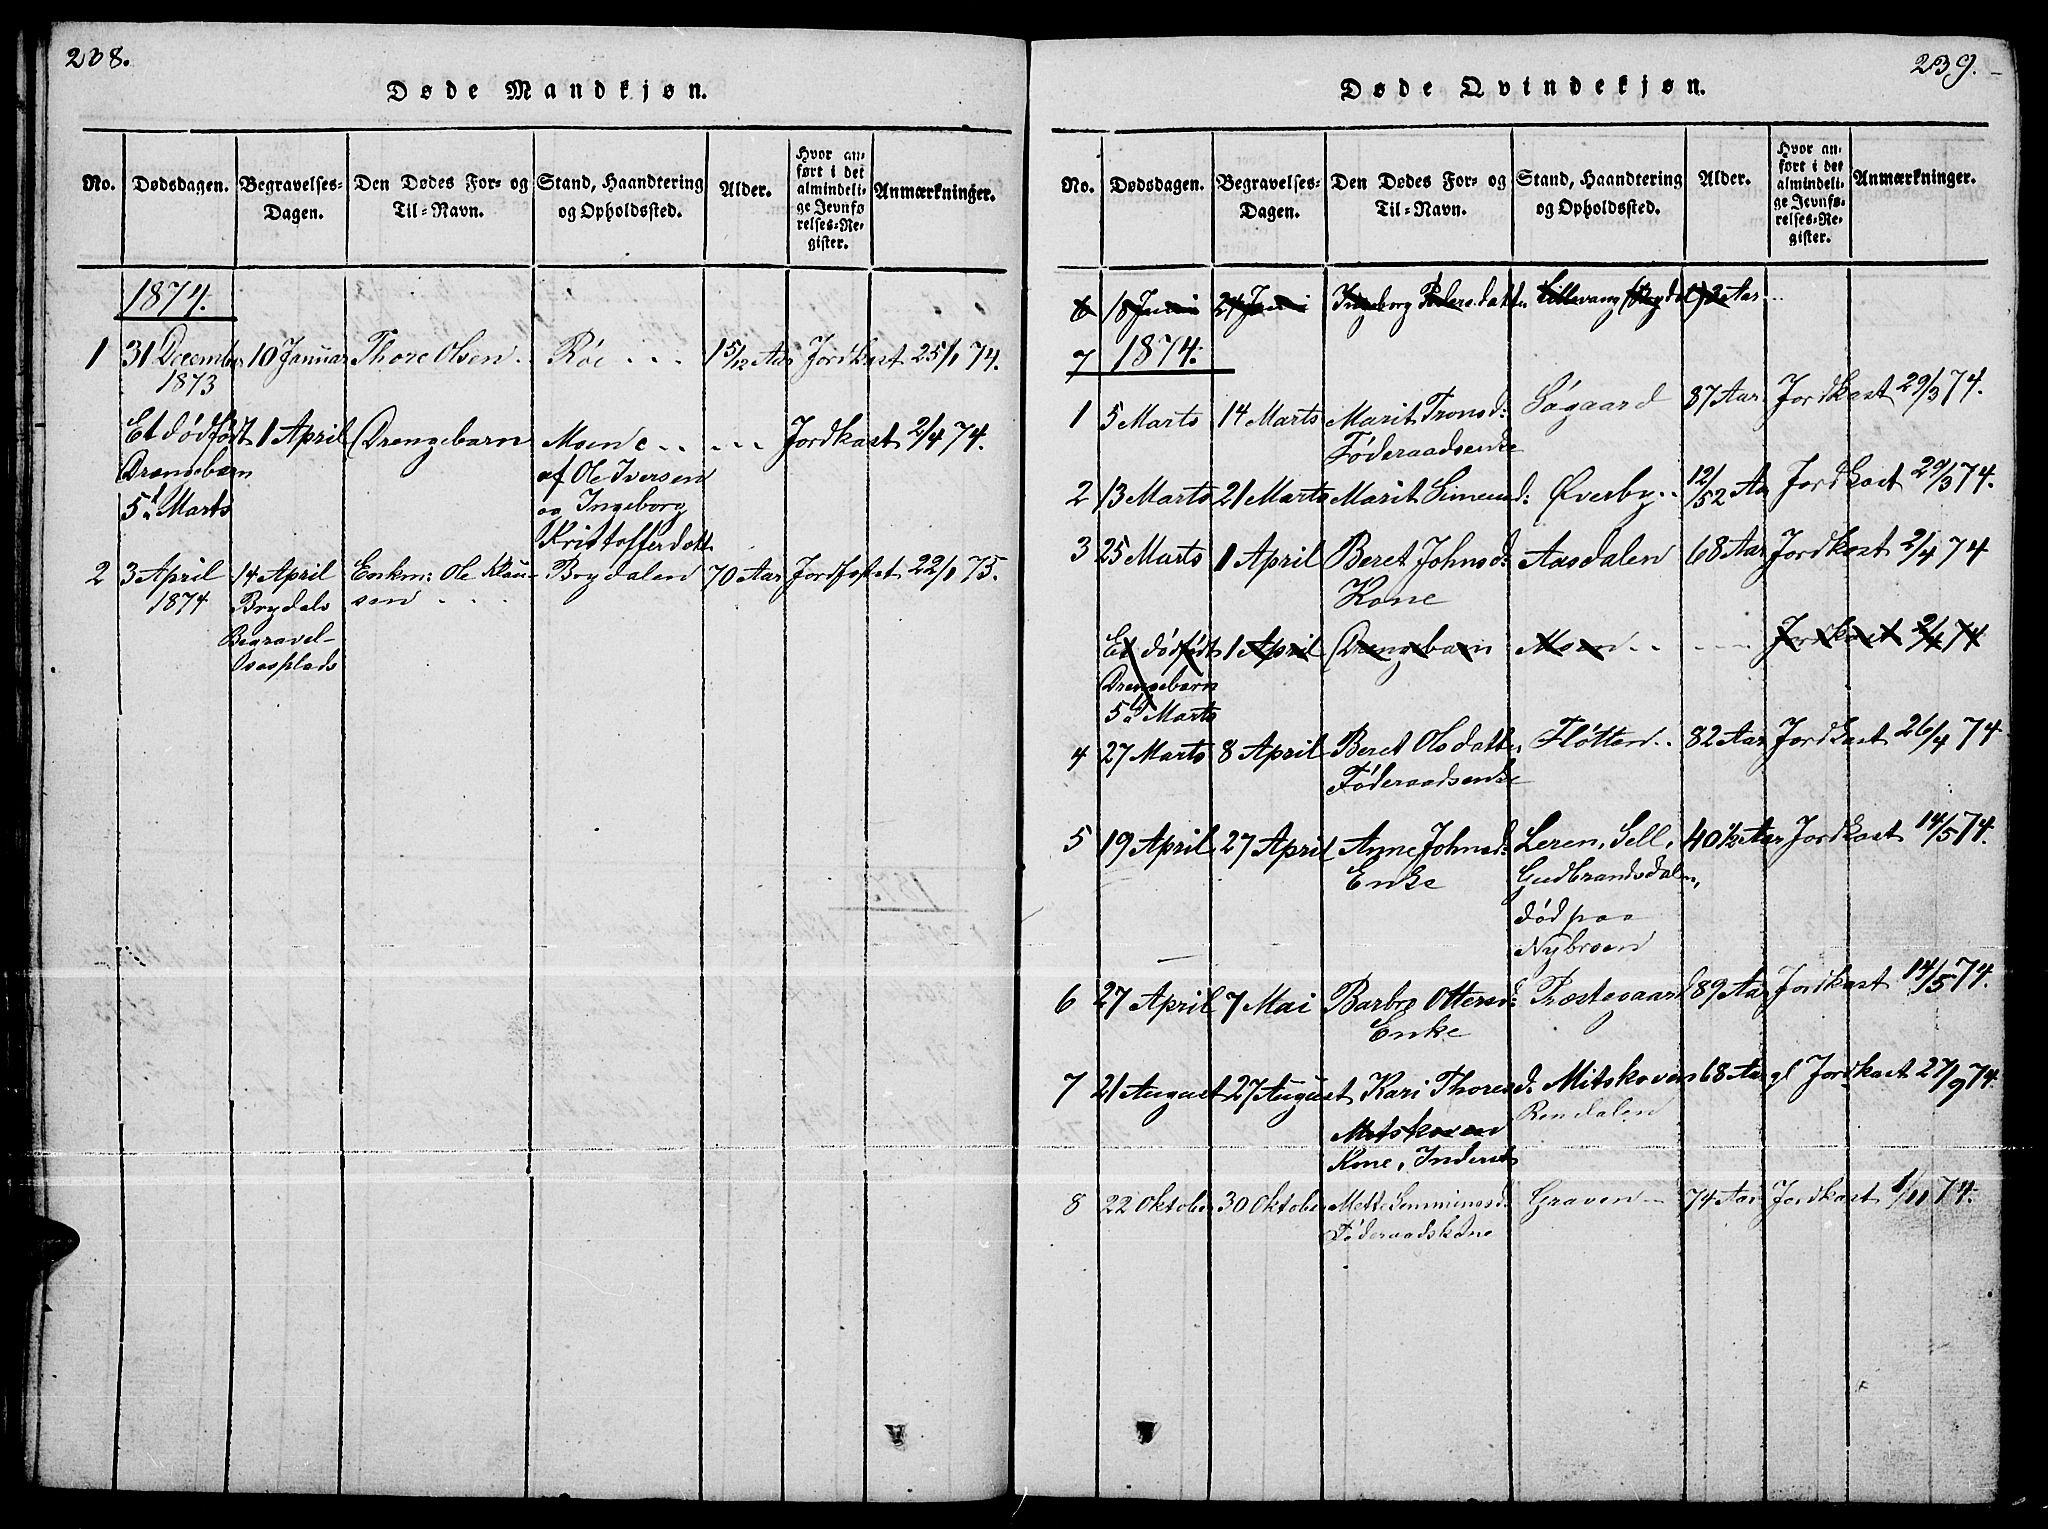 238.
Døde Mandkjøn.
No. Dødsdagen. Begravelses-Dagen. Den Dødes For- og Til-Navn. Stand, Haandtering og Opholdssted. Alder. Hvor anført i det almindelige Jevnførelses-Register. Anmærkninger.
1874.
1 31 December 10 Januar Thore Olsen Röe 1 5/12 Aar Jordkast 25/1 74.
1873
Et dödfödt 1 April Drengebarn Moen Jordkast 2/4 74.
Drengebarn af Ole Iversen
5te Marts og Ingeborg
Kristofferdatt
2 3 April 14 April Enkm: Ole Klau- Brydalen 70 Aar Jordfæstet 22/1 75.
1874 Brydals sen
Begravel-
sesplads
239.
Døde Qvindekjøn.
No. Dødsdagen. Begravelses-Dagen. Den Dødes For- og Til-Navn. Stand, Haandtering og Opholdssted. Alder. Hvor anført i det almindelige Jevnførelses-Register. Anmærkninger.
6 18 Juni 24 Juni Ingeborg Pedersdatter Lillevang 92 Aar
7 1874.
1 5 Marts 14 Marts Marit Tronsd: Søgaard 87 Aar Jordkast 29/3 74.
Föderaadsenke
2 13 Marts 21 Marts Marit Simensd: Øverby 12/52 Aar Jordkast 29/3 74.
3 25 Marts 1 April Beret Johnsd: Aasdalen 68 Aar Jordkast 2/4 74
Kone
Et dödfödt 1 April Drengebarn Moen Jordkast 2/4 74
Drengebarn
5te Marts
4 27 Marts 8 April Beret Olsdatter Fløtten 82 Aar Jordkast 26/4 74
Föderaadsenke
5 19 April 27 April Anne Johnsd: Leren, Sell, 40 1/2 Aar Jordkast 14/5 74.
Enke Gudbrandsdalen,
död paa
Nybroen
6 27 April 7 Mai Barbro Ottersd: Præstegaard 89 Aar Jordkast 14/5 74.
Enke
7 21 August 27 August Kari Thoresd. Mitskoven 68 Aar gl Jordkast 27/9 74.
Mitskoven Rendalen
Kone, Inderst
8 22 Oktober 30 Oktober Mette Semmingsd: Graven 74 Aar Jordkast 1/11 74.
Föderaadskone